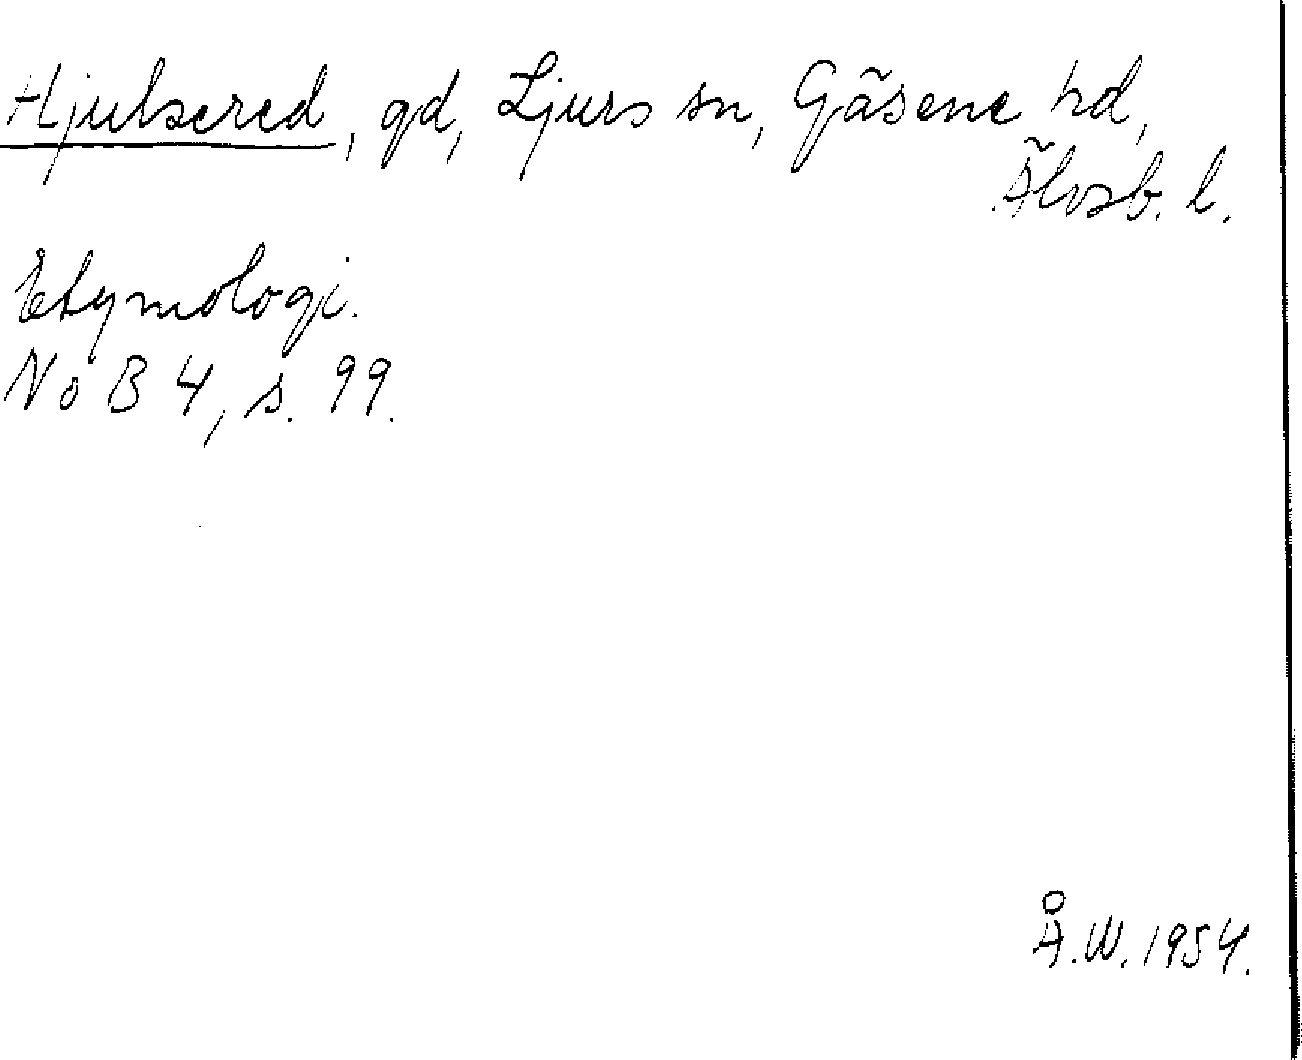 Hjulsered, gd, Ljurs sn, Gäsene hd,
Älvsb. l.
Etymologi.
NoB 4, s. 99.
Å.W. 1954.